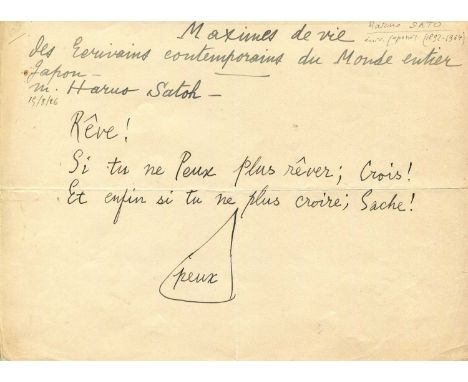 Maximes de vie
des Ecrivains contemporains du Monde entier
Japon —
M. Haruo Satoh —
Haruo SATO
japonais (1892-1964)
Rêve!
Si tu ne Peux plus rêver; Crois!
Et enfin si tu ne plus croire; Sache!
peux